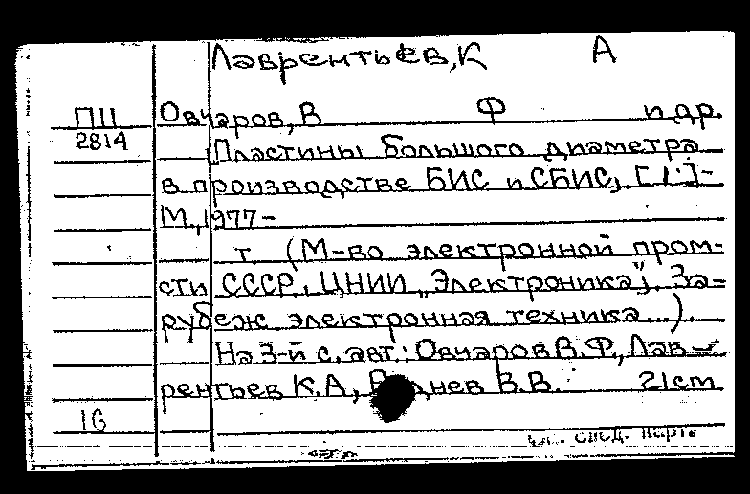 Лаврентьев, К А
Овчаров, В Ф и др.
ПII
2814
Пластины большого диаметра
в производстве БИС и СБИС, [1·]-
М., 1977-
т (М-во электронной пром-
сти СССР. ЦНИИ „Электроника“. За-
рубеж электронная техника...).
На 3-й с. авт.: Овчаров В.Ф., Лав-
рентьев К.А, В.В. 21 см
16
см. след. карт.